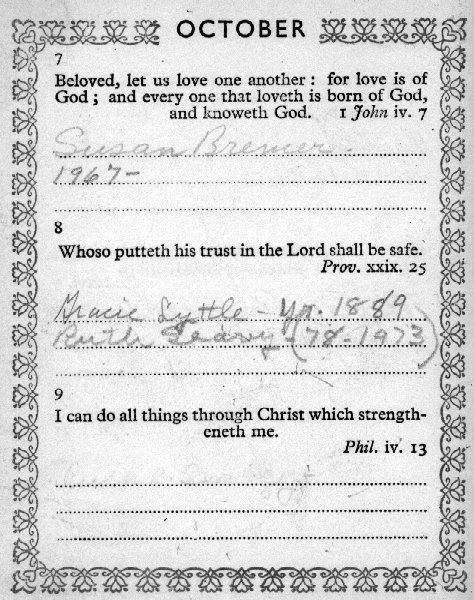 OCTOBER
7
Beloved, let us love one another : for love is of
God ; and every one that loveth is born of God,
and knoweth God. 1 John iv. 7
Susan Bremer.
1967-
8
Whoso putteth his trust in the Lord shall be safe.
Prov. xxix. 25
Gracie Lyttle - yr. 1889
Ruth Seavy - (78-1973)
9
I can do all things through Christ which strength-
eneth me.
Phil. iv. 13